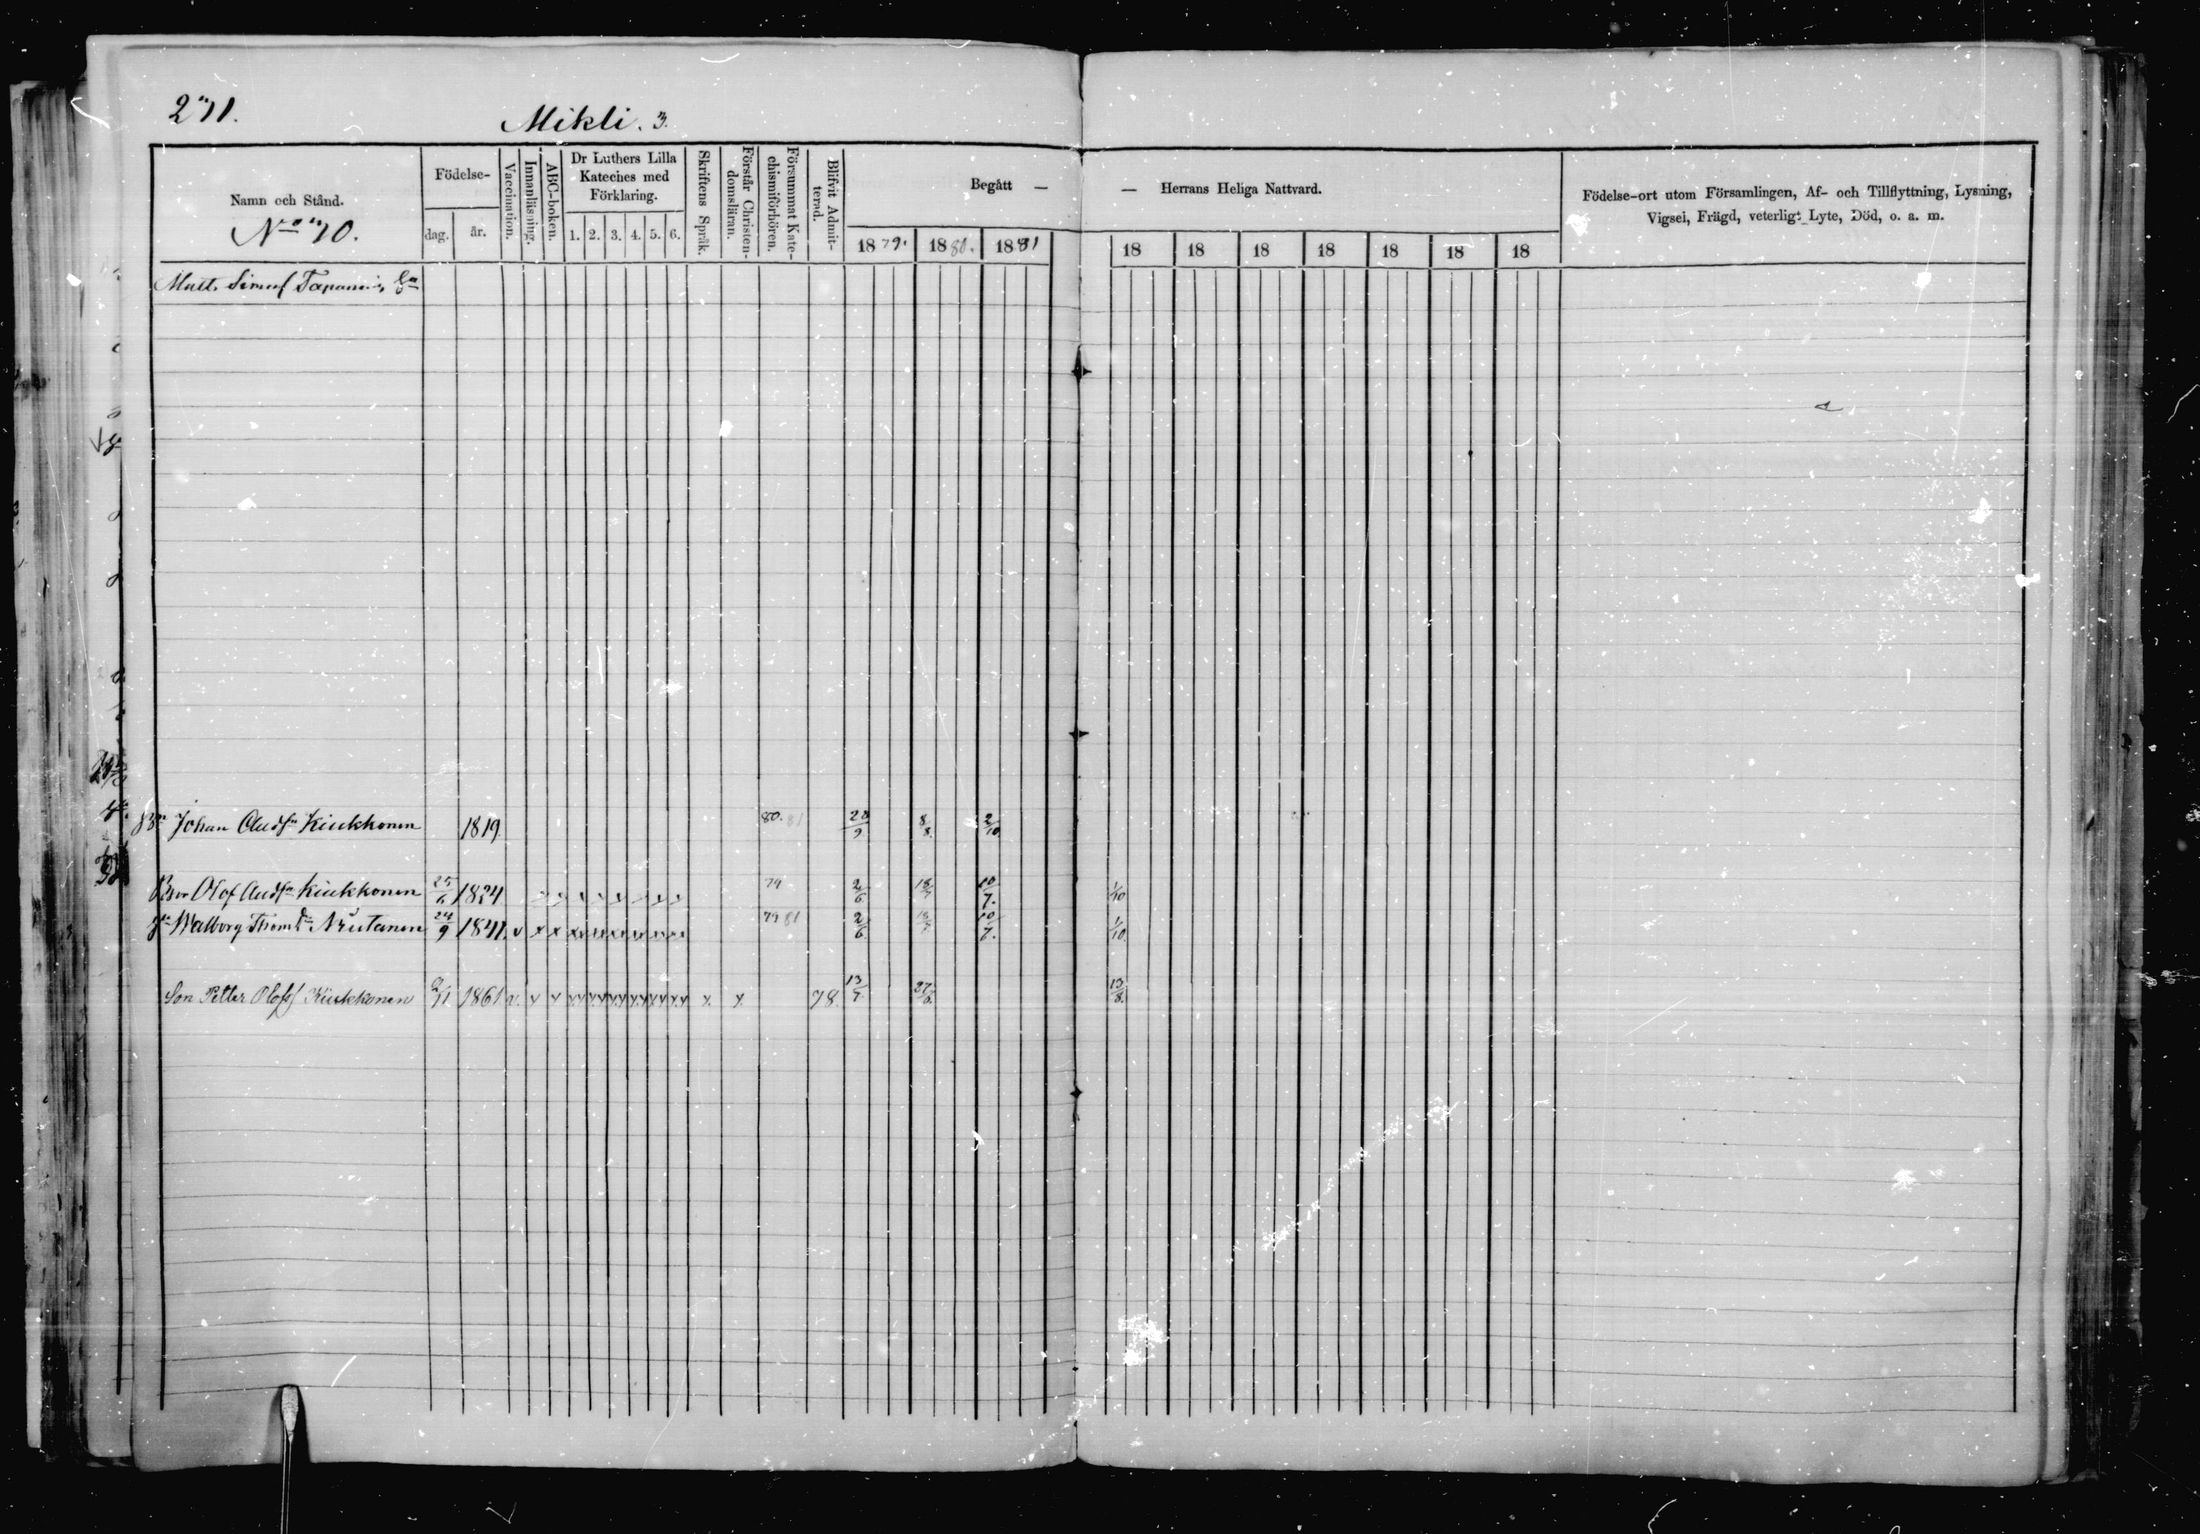 271.
Mikli. 3.
Namn och Stånd.
No 70.
Födelse-
dag.
år.
Vaccination.
Innanläsning.
ABC-boken.
Dr Luthers Lilla
Kateches med
Förklaring.
1. 2. 3. 4. 5. 6.
Skriftens Språk.
Förstår Christen-
domsläran.
Försummat Kate-
chismiförhören.
Blifvit Admit-
terad.
Begått —
1879. 1880. 1881
— Herrans Heliga Nattvard.
18 18 18 18 18 18 18
Födelse-ort utom Församlingen, Af- och Tillflyttning, Lysning,
Vigsel, Frägd, veterligt Lyte, Död, o. a. m.
Matts Simonss Tapanain
Johan Andsn Kiukkonen 1819 80. 81 28/9 8/8. 2/10.
Bror Olof Andsn Kiukkonen 25/6 1824 79 2/6 18/7 10/7. 1/10
Walborg Thomdr Nuutanen 24/9 1841 v x x 79 81 2/6 18/7 10/7. 1/10
Son Petter Olofss Kiukkonen 2/11. 1861 v. x x x x 78. 13/7. 27/6. 13/8.